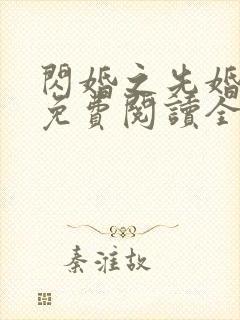 閃婚之先婚
免費閱讀全
秦淮故